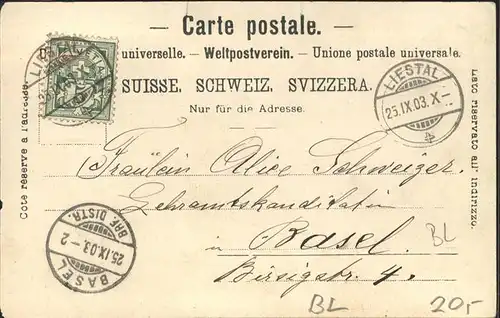 Carte postale.
universelle. — Weltpostverein. — Unione postale universale.
SUISSE. SCHWEIZ. SVIZZERA.
Nur für die Adresse.
Côté réservé à l'adresse.
Lato riservato all'indirizzo.
LIESTAL
25.IX.03.X–
LIESTAL
Fräulein Alice Schweizer
Lehramtskandidatin
in Basel.
Birsigstr. 4.
BASEL
25.IX.03.–2
BRF. DISTR.
BL
BL
20,-